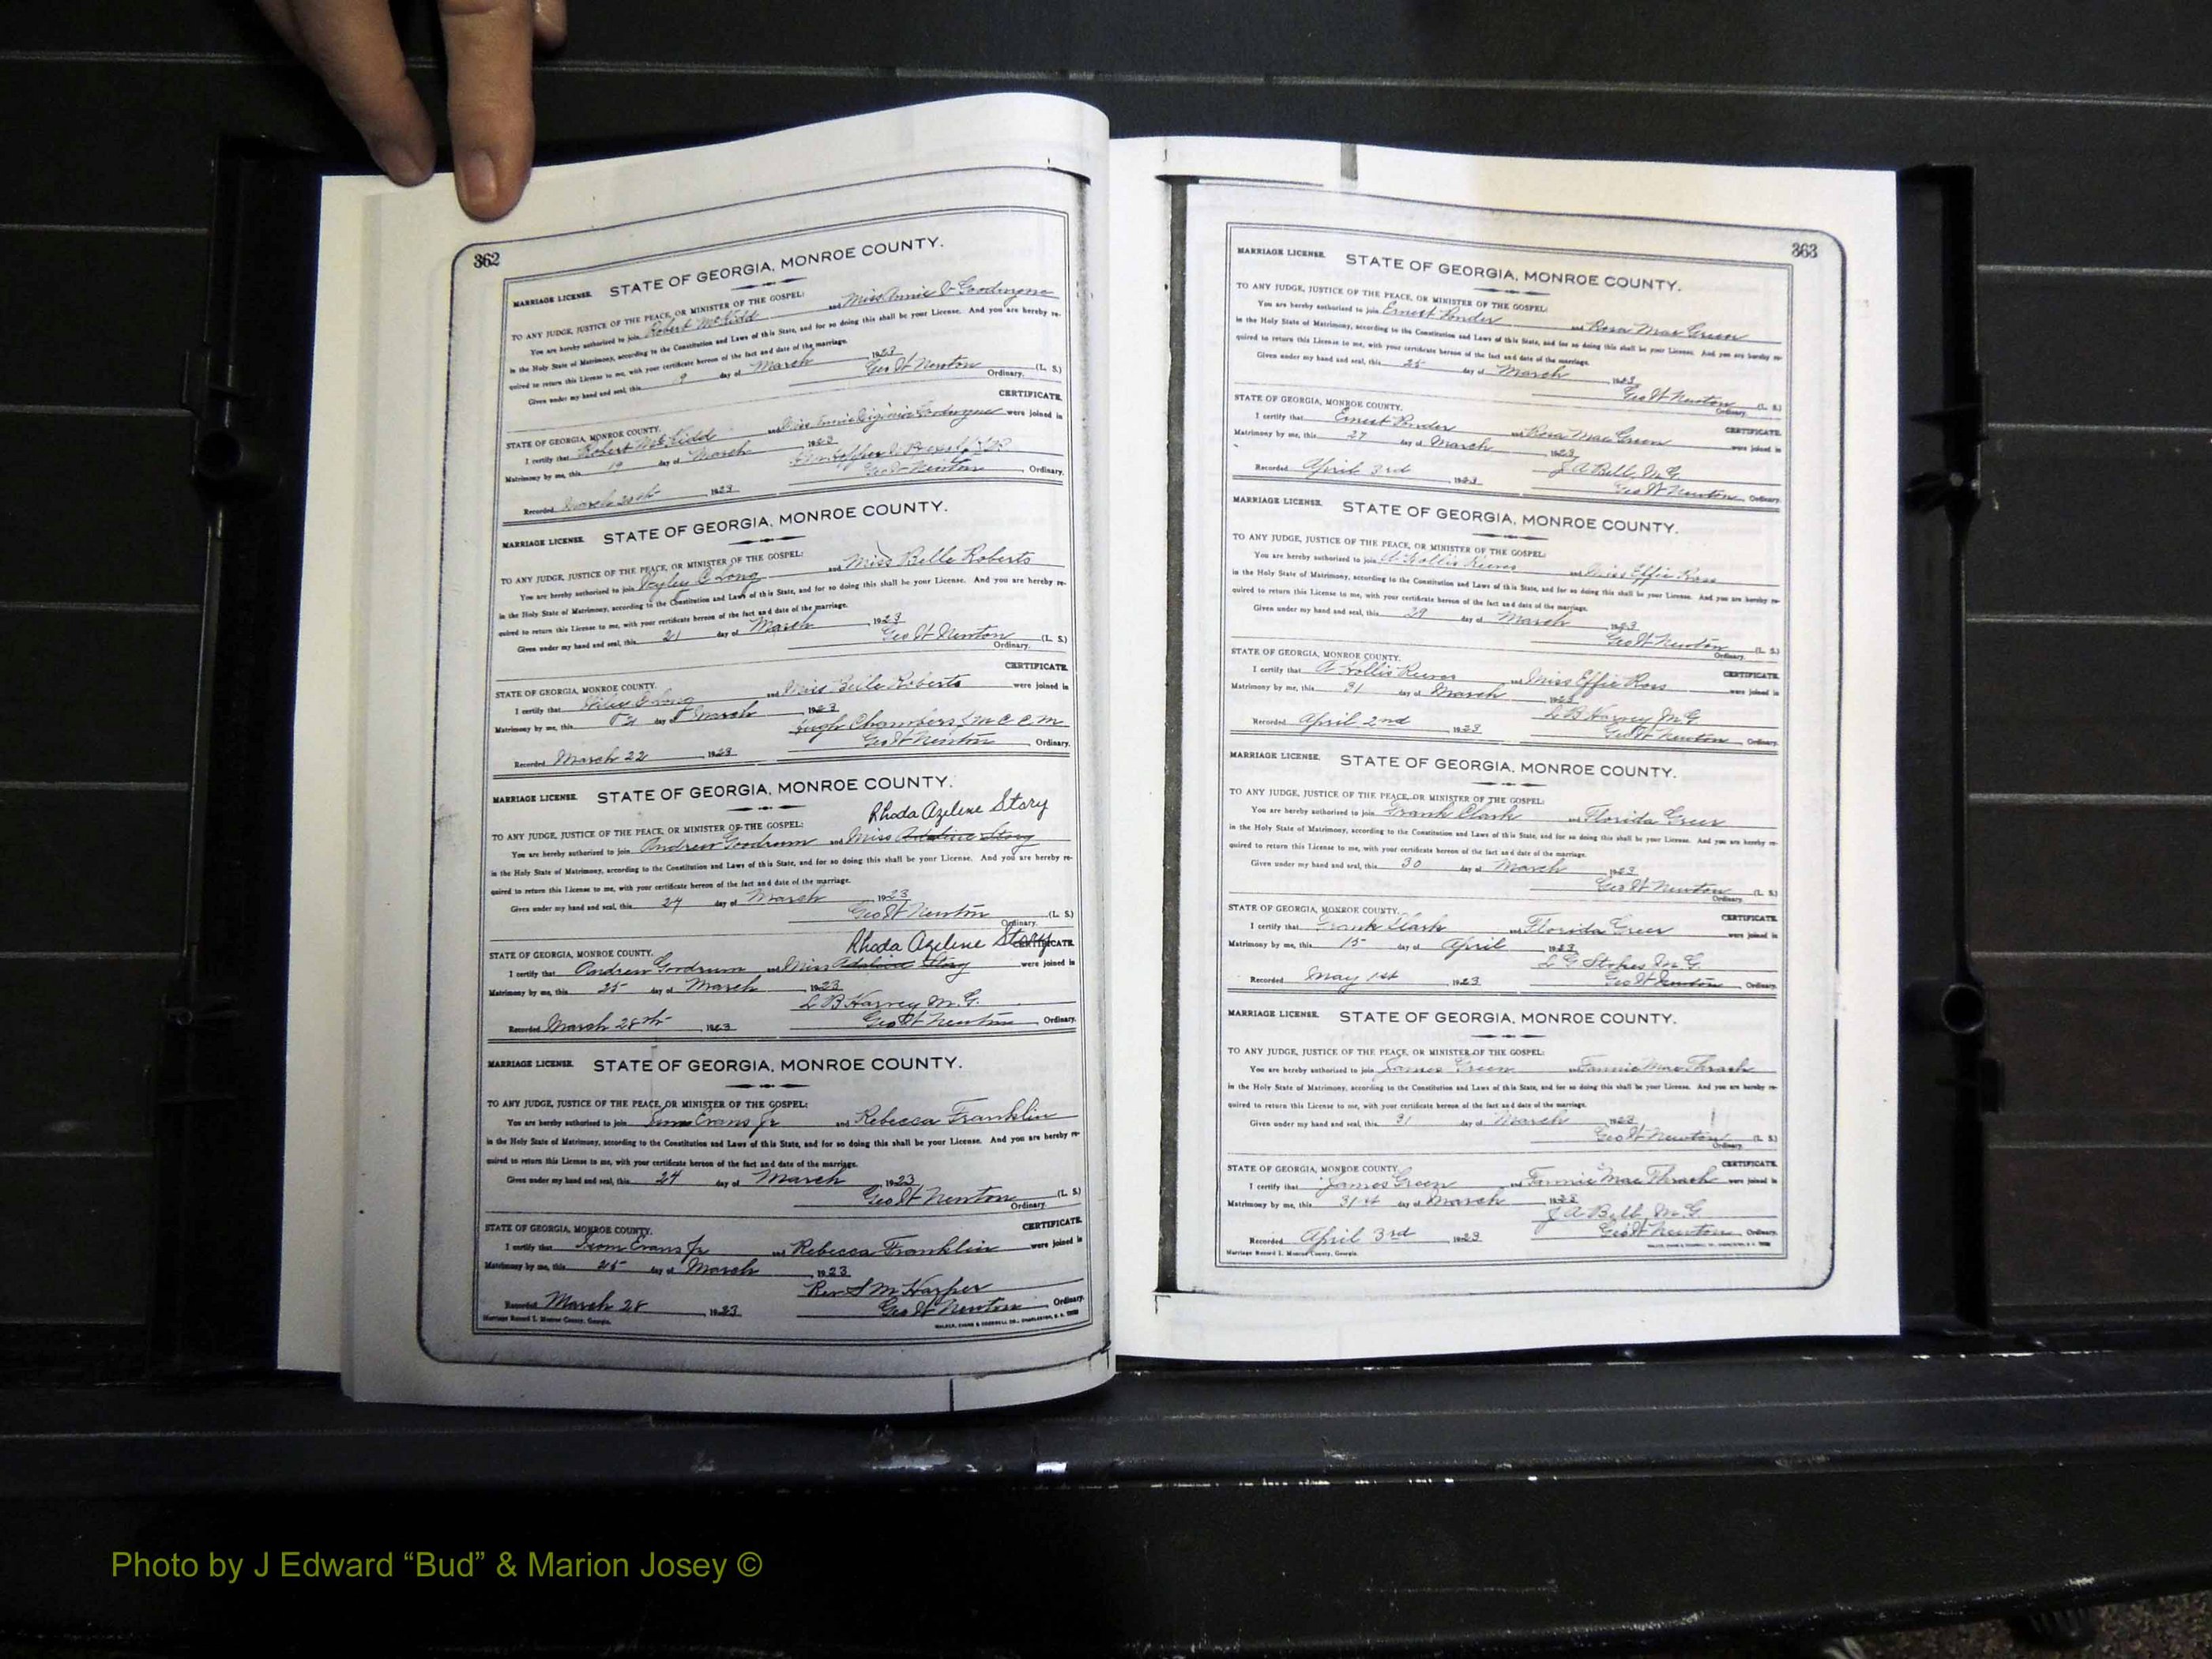 362
MARRIAGE LICENSE. STATE OF GEORGIA, MONROE COUNTY.
TO ANY JUDGE, JUSTICE OF THE PEACE, OR MINISTER OF THE GOSPEL:
You are hereby authorized to join Robert McKidd and Miss Annie V Goodwyne
in the Holy State of Matrimony, according to the Constitution and Laws of this State, and for so doing this shall be your License. And you are hereby re-
quired to return this License to me, with your certificate hereon of the fact and date of the marriage.
Given under my hand and seal, this 19 day of March 1923
Geo W Newton (L. S.)
Ordinary.
CERTIFICATE.
STATE OF GEORGIA, MONROE COUNTY.
I certify that Robert McKidd and Miss Annie Virginia Goodwyne were joined in
Matrimony by me, this 19 day of March 1923
Recorded March 20th 1923 Geo W Newton, Ordinary.
MARRIAGE LICENSE. STATE OF GEORGIA, MONROE COUNTY.
TO ANY JUDGE, JUSTICE OF THE PEACE, OR MINISTER OF THE GOSPEL:
You are hereby authorized to join Wyley C Long and Miss Belle Roberts
in the Holy State of Matrimony, according to the Constitution and Laws of this State, and for so doing this shall be your License. And you are hereby re-
quired to return this License to me, with your certificate hereon of the fact and date of the marriage.
Given under my hand and seal, this 21 day of March 1923
Geo W Newton (L. S.)
Ordinary.
CERTIFICATE.
STATE OF GEORGIA, MONROE COUNTY.
I certify that Wiley C Long and Miss Belle Roberts were joined in
Matrimony by me, this day of March 1923
Hugh Chambers, J M C C M
Recorded March 22 1923 Geo W Newton, Ordinary.
MARRIAGE LICENSE. STATE OF GEORGIA, MONROE COUNTY.
Rhoda Azelene Story
TO ANY JUDGE, JUSTICE OF THE PEACE, OR MINISTER OF THE GOSPEL:
You are hereby authorized to join Andrew Goodrum and Miss Adaline Story
in the Holy State of Matrimony, according to the Constitution and Laws of this State, and for so doing this shall be your License. And you are hereby re-
quired to return this License to me, with your certificate hereon of the fact and date of the marriage.
Given under my hand and seal, this 24 day of March 1923
Geo W Newton (L. S.)
Ordinary.
Rhoda Azelene Story CERTIFICATE.
STATE OF GEORGIA, MONROE COUNTY.
I certify that Andrew Goodrum and Miss Adaline Story were joined in
Matrimony by me, this 25 day of March, 1923
L B Harvey M. G.
Recorded March 28th, 1923 Geo W Newton Ordinary.
MARRIAGE LICENSE. STATE OF GEORGIA, MONROE COUNTY.
TO ANY JUDGE, JUSTICE OF THE PEACE, OR MINISTER OF THE GOSPEL:
You are hereby authorized to join Evans Jr and Rebecca Franklin
in the Holy State of Matrimony, according to the Constitution and Laws of this State, and for so doing this shall be your License. And you are hereby re-
quired to return this License to me, with your certificate hereon of the fact and date of the marriage.
Given under my hand and seal, this 24 day of March, 1923
Geo W Newton (L. S.)
Ordinary.
CERTIFICATE.
STATE OF GEORGIA, MONROE COUNTY.
I certify that Evans Jr and Rebecca Franklin were joined in
Matrimony by me, this 25 day of March, 1923
Rev S M Harper
Recorded March 28, 1923 Geo W Newton, Ordinary.
Marriage Record I. Monroe County, Georgia. WALKER, EVANS & COGSWELL CO., CHARLESTON, S. C.
363
MARRIAGE LICENSE. STATE OF GEORGIA, MONROE COUNTY.
TO ANY JUDGE, JUSTICE OF THE PEACE, OR MINISTER OF THE GOSPEL:
You are hereby authorized to join Ernest Ponder and Rosa Mae Green
in the Holy State of Matrimony, according to the Constitution and Laws of this State, and for so doing this shall be your License. And you are hereby re-
quired to return this License to me, with your certificate hereon of the fact and date of the marriage.
Given under my hand and seal, this 25 day of March, 1923
Geo W Newton (L. S.)
Ordinary.
STATE OF GEORGIA, MONROE COUNTY. CERTIFICATE.
I certify that Ernest Ponder and Rosa Mae Green were joined in
Matrimony by me, this 27 day of March, 1923
J A Bell, M. G.
Recorded April 3rd, 1923 Geo W Newton, Ordinary.
MARRIAGE LICENSE. STATE OF GEORGIA, MONROE COUNTY.
TO ANY JUDGE, JUSTICE OF THE PEACE, OR MINISTER OF THE GOSPEL:
You are hereby authorized to join A Hollis Reeves and Miss Effie Ross
in the Holy State of Matrimony, according to the Constitution and Laws of this State, and for so doing this shall be your License. And you are hereby re-
quired to return this License to me, with your certificate hereon of the fact and date of the marriage.
Given under my hand and seal, this 29 day of March, 1923
Geo W Newton (L. S.)
Ordinary.
STATE OF GEORGIA, MONROE COUNTY. CERTIFICATE.
I certify that A Hollis Reeves and Miss Effie Ross were joined in
Matrimony by me, this 31 day of March, 1923
L B Harvey M. G.
Recorded April 2nd, 1923 Geo W Newton, Ordinary.
MARRIAGE LICENSE. STATE OF GEORGIA, MONROE COUNTY.
TO ANY JUDGE, JUSTICE OF THE PEACE, OR MINISTER OF THE GOSPEL:
You are hereby authorized to join Frank Clark and Florida Greer
in the Holy State of Matrimony, according to the Constitution and Laws of this State, and for so doing this shall be your License. And you are hereby re-
quired to return this License to me, with your certificate hereon of the fact and date of the marriage.
Given under my hand and seal, this 30 day of March, 1923
Geo W Newton (L. S.)
Ordinary.
STATE OF GEORGIA, MONROE COUNTY. CERTIFICATE.
I certify that Frank Clark and Florida Greer were joined in
Matrimony by me, this 15 day of April, 1923
L G Stokes M. G.
Recorded May 1st, 1923 Geo W Newton, Ordinary.
MARRIAGE LICENSE. STATE OF GEORGIA, MONROE COUNTY.
TO ANY JUDGE, JUSTICE OF THE PEACE, OR MINISTER OF THE GOSPEL:
You are hereby authorized to join James Green and Fannie Mae Thrash
in the Holy State of Matrimony, according to the Constitution and Laws of this State, and for so doing this shall be your License. And you are hereby re-
quired to return this License to me, with your certificate hereon of the fact and date of the marriage.
Given under my hand and seal, this 31 day of March 1923
Geo W Newton (L. S.)
Ordinary.
STATE OF GEORGIA, MONROE COUNTY. CERTIFICATE.
I certify that James Green and Fannie Mae Thrash were joined in
Matrimony by me, this 31st day of March, 1923
J A Bell, M. G.
Recorded April 3rd, 1923 Geo W Newton, Ordinary.
Marriage Record I. Monroe County, Georgia.
Photo by J Edward “Bud” & Marion Josey ©